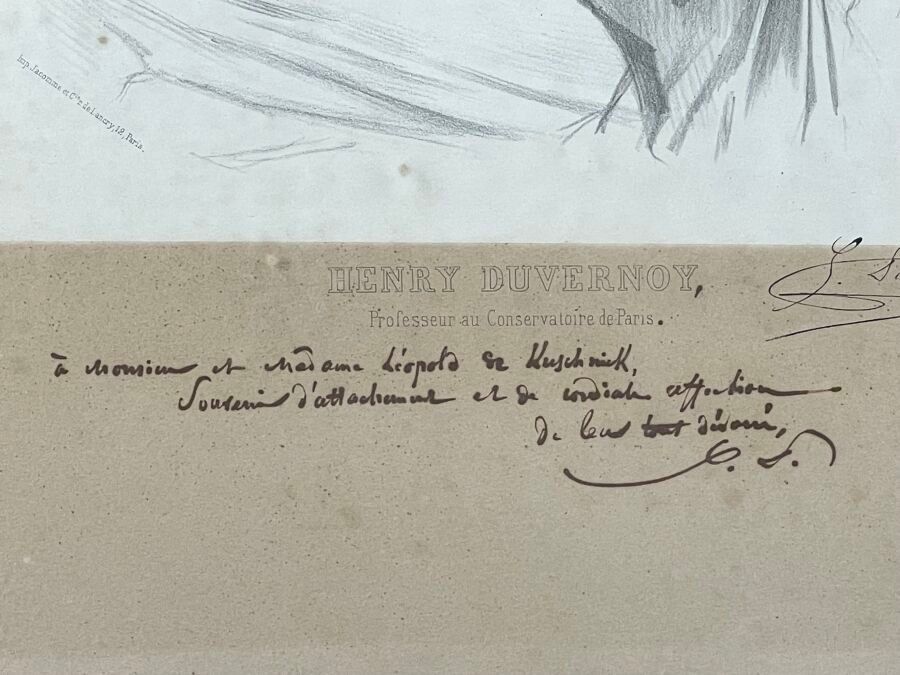 Imp. Jacomme et Cie r. de Lancry, 12, Paris.
HENRY DUVERNOY,
Professeur au Conservatoire de Paris.
à Monsieur et Madame Léopold de Kuschnick,
Souvenir d'attachement et de cordiale affection
de leur tout dévoué,